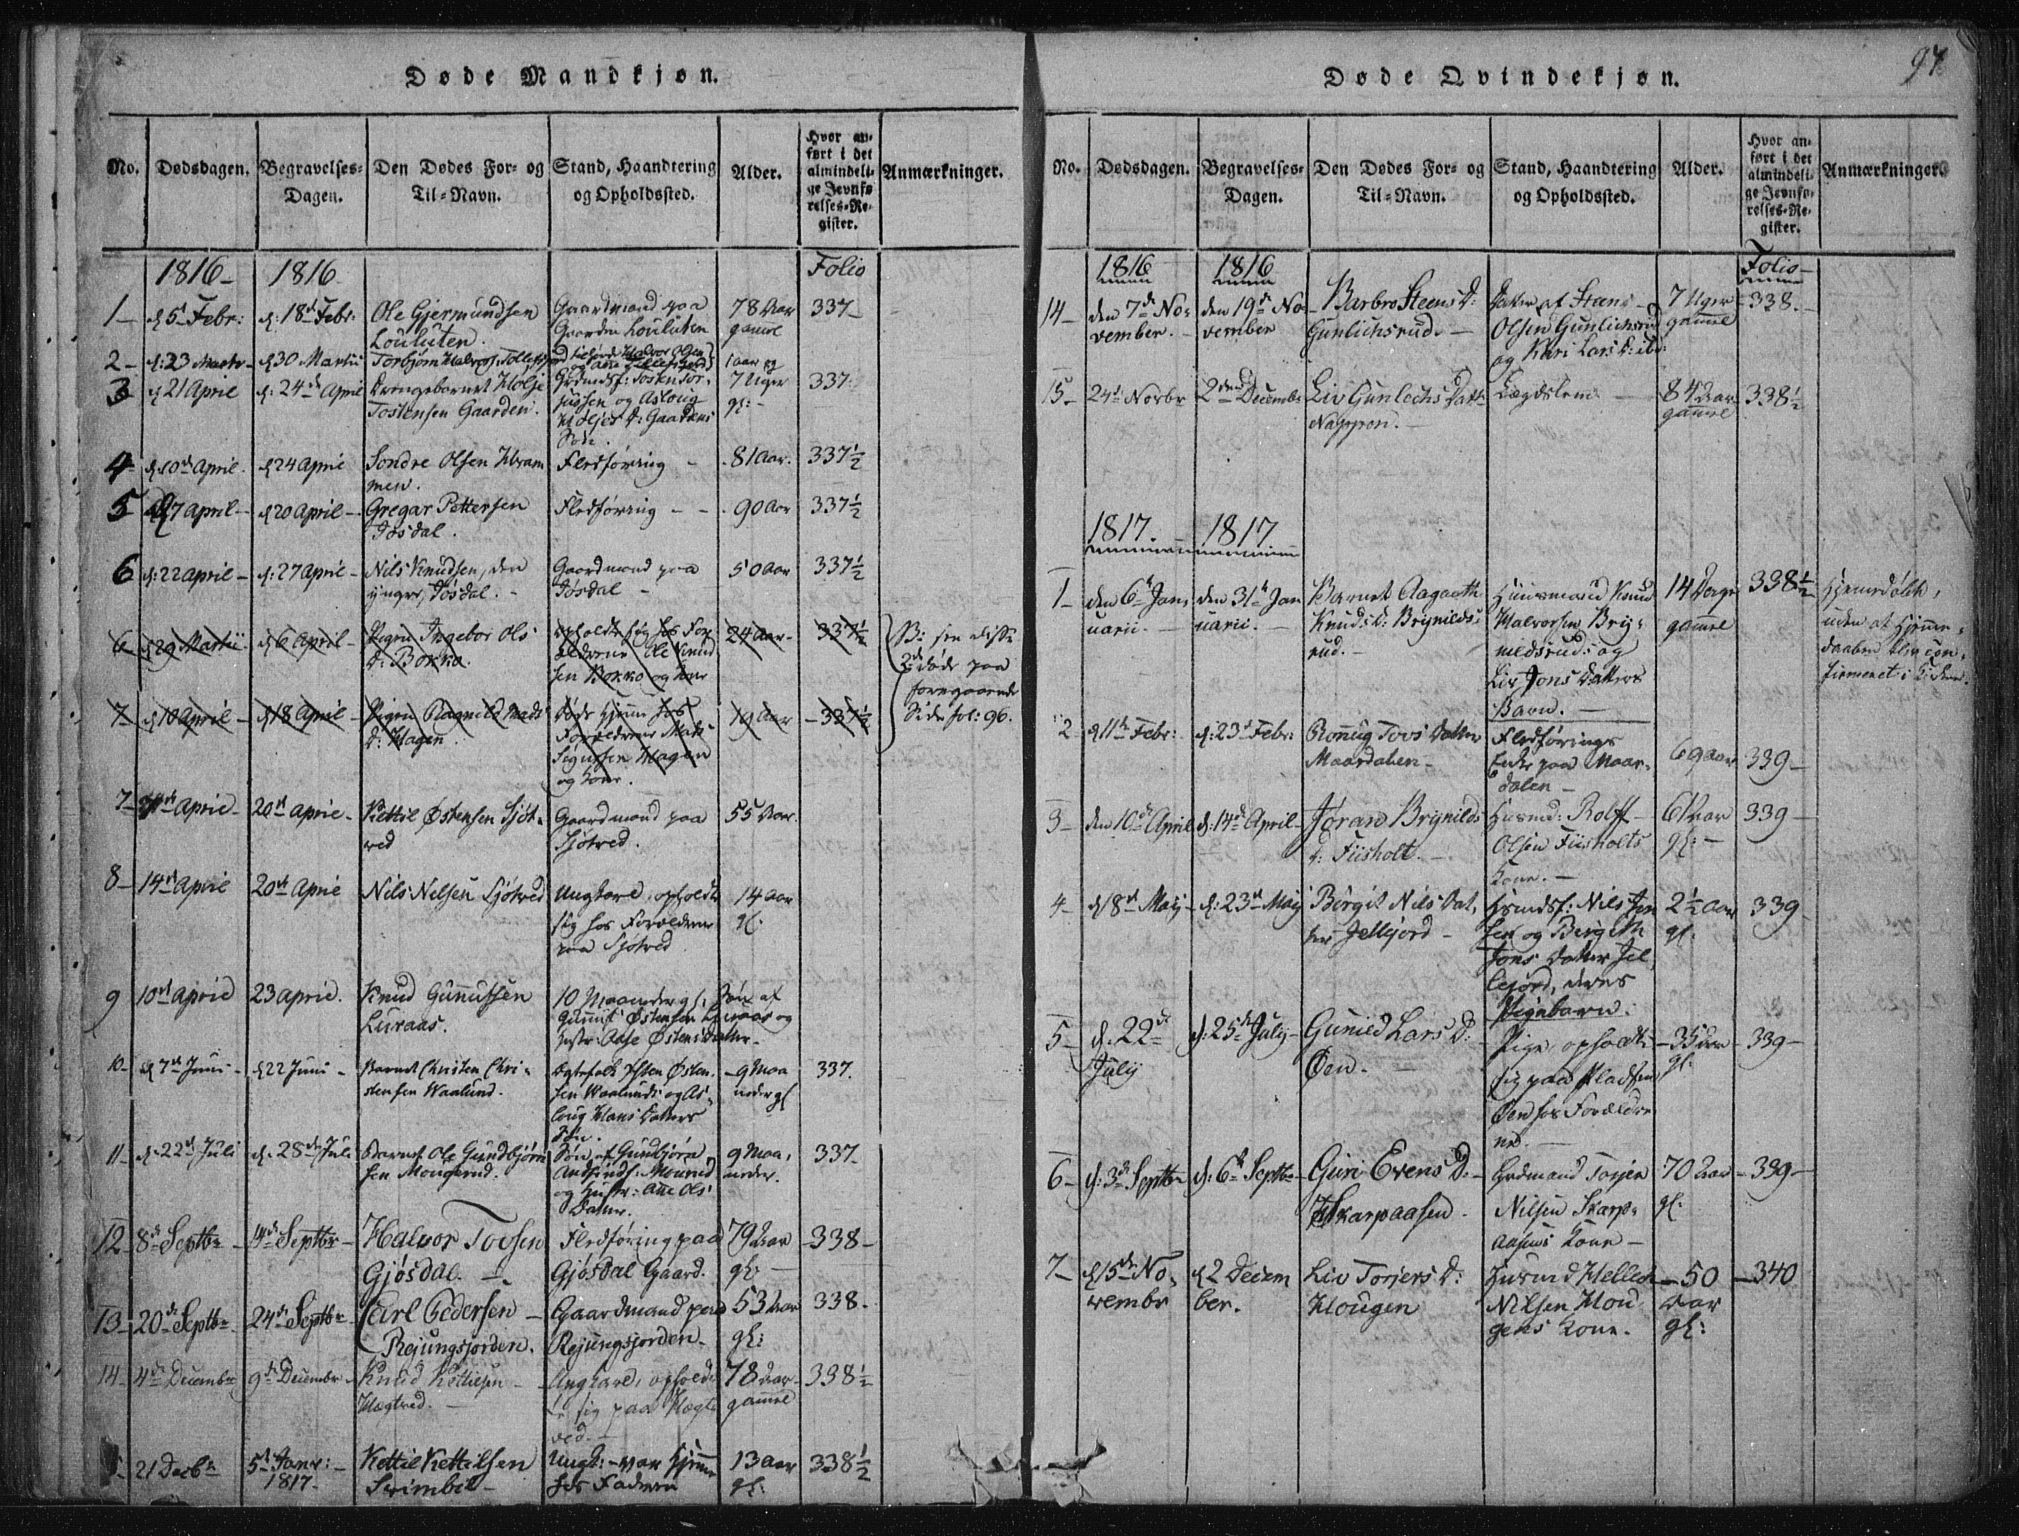 97
Døde Mandkjøn.
No.
Dødsdagen.
Begravelses-
Dagen.
Den Dødes For- og
Til-Navn.
Stand, Haandtering
og Opholdssted.
Alder.
Hvor an-
ført i det
almindeli-
ge Jevnfø
relses-Re-
gister.
Anmærkninger.
1816 1816 Folio
1 d 5t Febr: d: 18d Febr: Ole Gjermundsen
Louluten.
Gaardmand paa
Gaarden Louluten
78 Aar
gamel
337
2 d: 23 Martii d 30 Martii Torbjørn Halvors: Tollefsjord
Halvor Olsen
1 aar og
3 d 21 April d: 24de April Drengebarnet Holje
Tostensen Gaarden.
og Asloug
Holjes D: Gaardens
Søn.
7 Uger
gl:
337
4 d 10d April. d 24 April Sondre Olsen Hvam
men.
Fledføring
81 Aar.
337½
5 17 April d 20 April Gregar Pettersen
Jøsdal.
Fledføring
90 Aar
337½
6 d: 22 April d: 27 April Nils Knudsen, den
yngre, Jøsdal.
Gaardmand paa
Jøsdal
50 Aar
337½
6 d 29 Martii d 6 April Pigen Ingebor Ols
D: Bokko.
opholdt sig hos For
ældrene Ole Knud
sen Bokko og Kone
24 Aar
337½
NB: see disse
2de døde paa
foregaaende
Side fol: 96.
7 d 10 April d 18 April Pigen Ragnild Mads
D: Hagen.
døde hjemme hos
Forældrene Mads
Sigursen Hagen
og Kone.
19 Aar
337½
7 April 20de April Kettil Østensen Sjøt-
ved
Gaardmand paa
Sjøtved.
55 Aar.
8 14de April 20de April Nils Nelsen Sjøtved
Ungkarl, opholdt
sig hos Forældrene
paa Sjøtved
14 Aar
gl:
9 10de April 23 April. Knud Gunnufsen
Luraas.
10 Maaneder gl: Søn af
Gunnuf Østensen Luraas og
Hustr: Aase Østens Datter
10 d 7de Juni d 22 Juni Barnet Christen Chri-
stensen Waalund.
Østen
sen Waalund: og As-
loug Hans Datters
Søn.
9 Maa
neder gl
337.
11 d: 22de Juli d: 28de Juli Barnet Ole Gundbjørn
sen Mongerud.
Søn af Gundbjørn
og Hustr: Anne Ols
Datter.
9 Maa,
neder.
337
12 8de Septbr 14de Septbr Halvor Tovsen
Gjøsdal.
Fledføring paa
Gjøsdal Gaard.
79 Aar
gl:
338
13 20de Septbr 24de Septbr Carl Pedersen
Rejungsjorden.
Gaardmand paa
Rejungsjorden
53 Aar
gl:
338.
14 4de Decembr 9de Decembr Knud Kettilsen
Hægtved.
Ungkarl, opholdt
sig paa Hægt
ved.
78 Aar
gamel
338½
21 Decbr 5t Janr:
1817.
Kettil Kettilsen
Svimbil
Ungk: var hjemme
hos Faderen
13 Aar
gl:
338½
Døde Qvindekjøn.
No.
Dødsdagen.
Begravelses-
Dagen.
Den Dødes For- og
Til-Navn.
Stand, Haandtering
og Opholdssted.
Alder.
Hvor an-
ført i det
almindeli-
ge Jevnfø-
relses-Re-
gister.
Anmærkninger.
1816 1816 Folio
14 den 7de No-
vember.
den 19de No
vember
Barbro Steens D:
Gunlichsrud.
Datter af Steen
Olsen Gunlichsrud
og Kari Lars D: ibi:
7 Uger
gamel
338.
15 24de Novbr 2den Decembr Liv Gunlechs Datt:
Nappron.
Lægdslem
84 Aar
gamel
338½
1817. 1817
1 den 6te Jan,
uarii.
den 31te Jan
uarii.
Barnet Aagaath
Knuds D: Brynilds-
rud.
Huusmand Knud
Halvorsen Bry-
nildsrud: og
Liv Jons Datters
Barn.
14 Dage
gamel
338½
Hjemmedøbt,
uden at Hjemme-
daaben blev con-
firmeret i Kirken.
2 d 11te Febr: d: 23de Febr: Ronnug Tovs Datter
Maardalen
Fledførings
Enke paa Maar-
dalen
69 Aar
339
3 den 10de April d: 14de April Jøran Brynilds
D: Fiisholt.
Huusmd: Rolff
Olsen Fiisholts
Kone.
61 Aar
gl:
339
4 d 8de Maij d: 23de Maij Børgit Nils Dat,
ter Jelljord
Nils Jen
sen og Birgith
Jons Datter Jel
ljord, deres
Pigebarn.
2½ Aar
gl:
339
5 d. 22de
July
d: 25de July
Gunild Lars D:
Øen.
Pige, opholdt
sig paa Pladsen
Øen hos Forældre
ne.
35 Aar
gl:
339
6 d: 3de Septbr d: 6te Septbr Guri Evens D:
Skarpaasen.
Grdmand Torjer
Nilsen Skarp-
aasens Kone
70 Aar
gl:
339
7 d 15de No,
vembr
d 2 Decem
ber.
Liv Torjers D:
Hougen
Huusmd Hellech
Nilsen Hou
gens Kone.
50
Aar
gl:
340